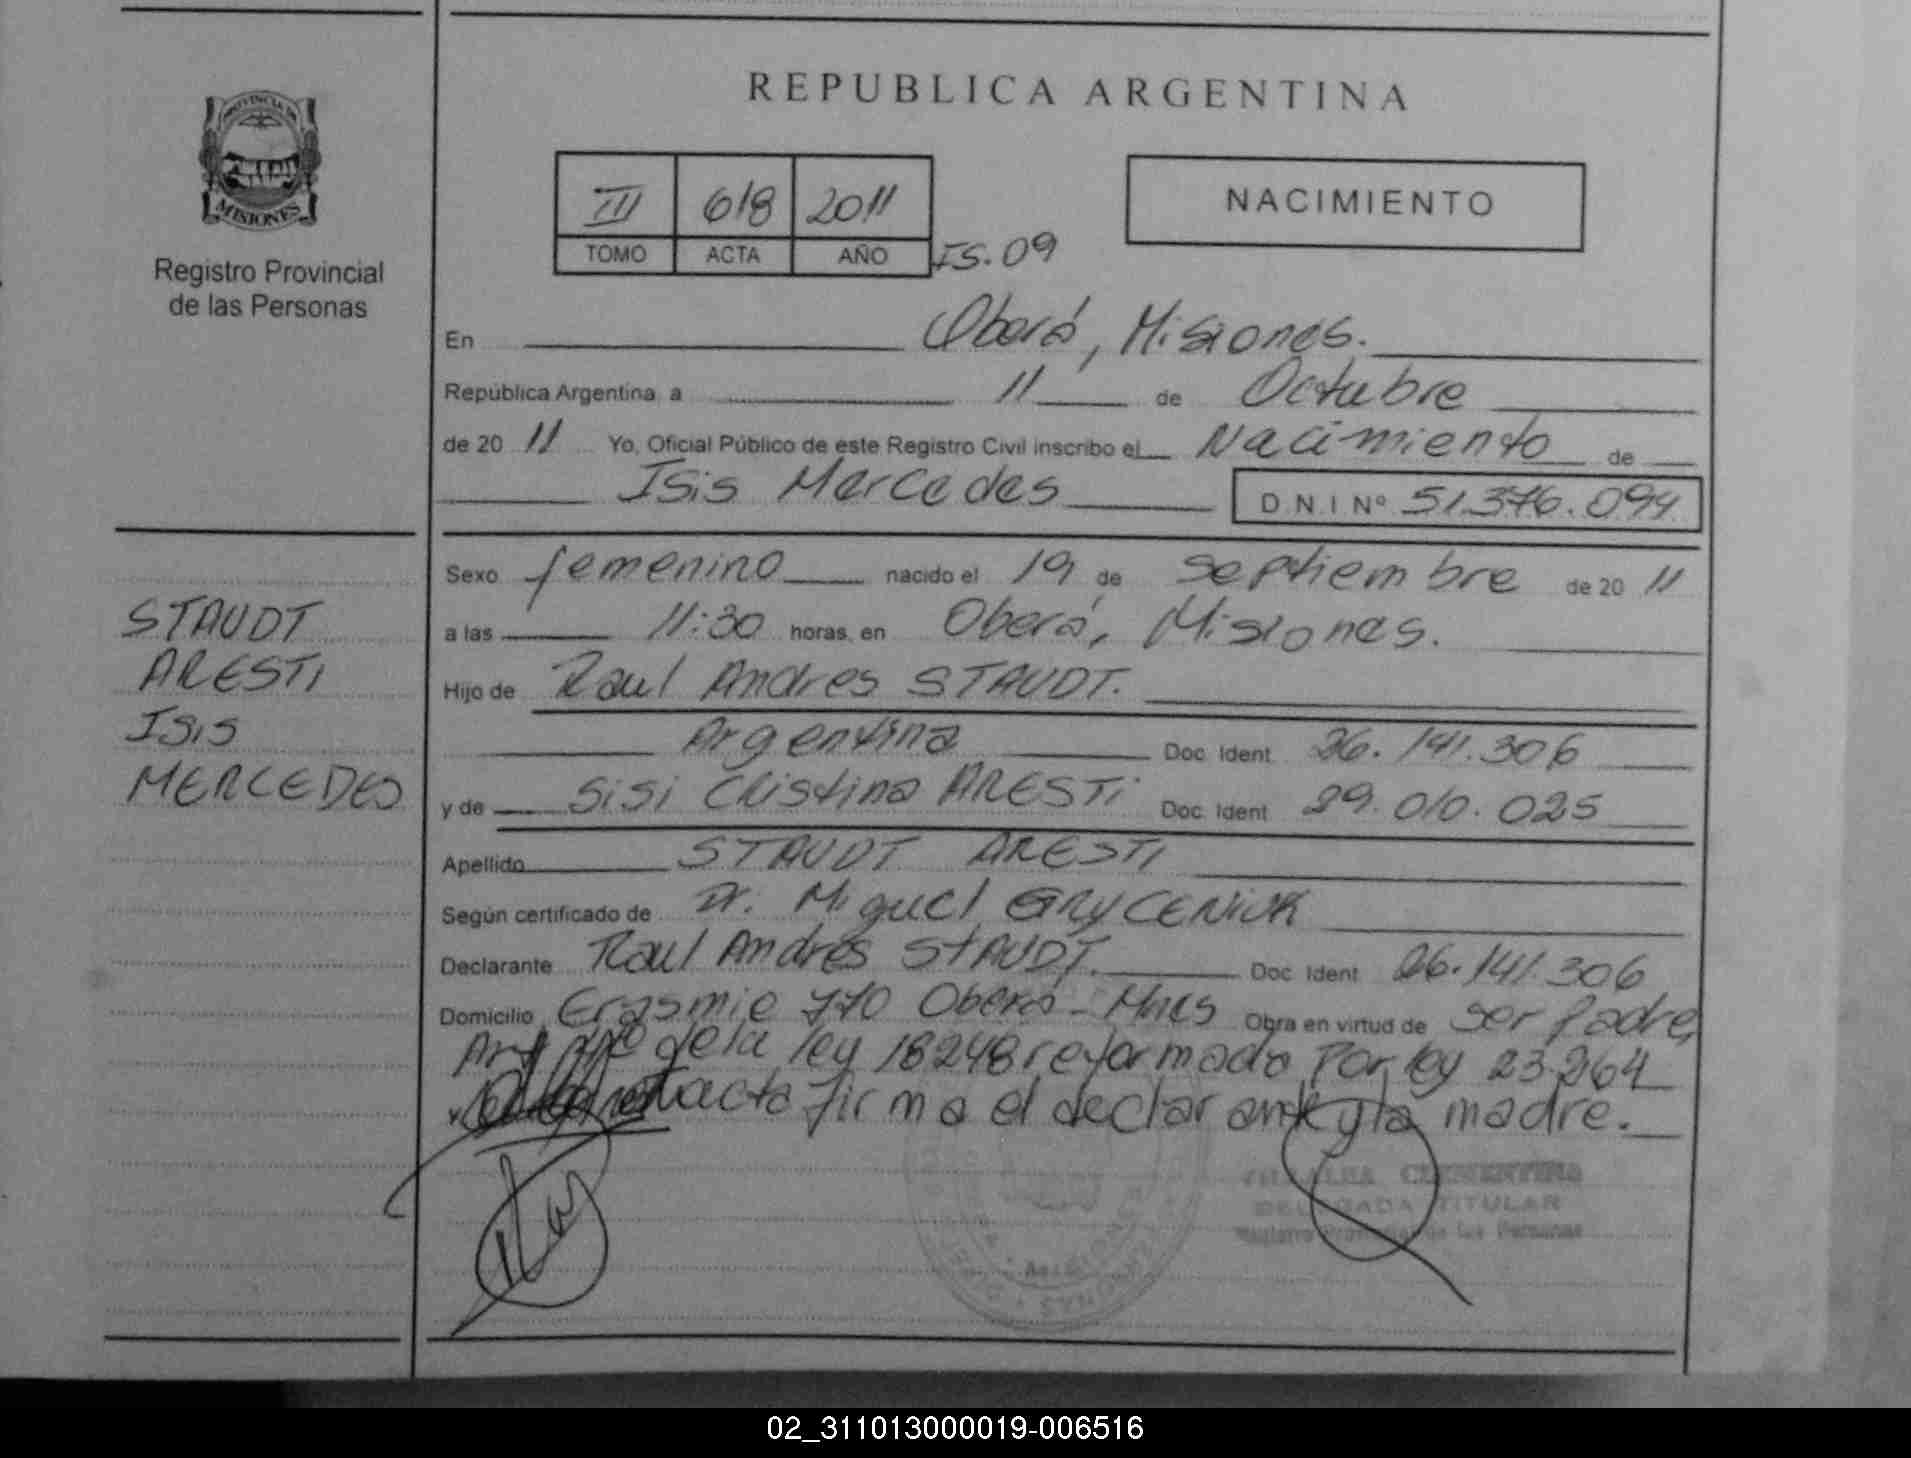 REPUBLICA ARGENTINA
PROVINCIA DE
MISIONES
Registro Provincial
de las Personas
III 618 2011
TOMO ACTA AÑO
IS.09
NACIMIENTO
En Oberá, Misiones.
República Argentina, a 11 de Octubre
de 20 11 Yo, Oficial Público de este Registro Civil inscribo el Nacimiento de
Isis Mercedes D.N.I Nº 51.376.094
STAUDT
ARESTI
ISIS
MERCEDES
Sexo femenino nacido el 19 de septiembre de 20 11
a las 11:30 horas, en Oberá, Misiones.
Hijo de Raul Andres STAUDT.
Argentina Doc. Ident. 26.141.306
y de Sisi Cristina ARESTI Doc. Ident. 29.010.025
Apellido STAUDT ARESTI
Según certificado de Dr. Miguel GRYCENIUK
Declarante Raul Andres STAUDT. Doc. Ident. 26.141.306
Domicilio 770 Oberá - Mnes Obra en virtud de ser Padre
de la ley 18248 reformada Por ley 23.264
acta firma el declarante y la madre.
CLEMENTINA
DELEGADA TITULAR
Registro Provincial de las Personas
02_311013000019-006516